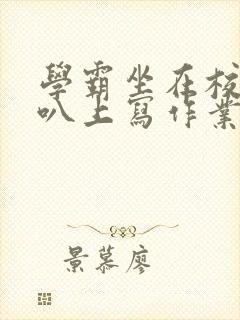 學霸坐在校
叭上寫作業
景慕廖